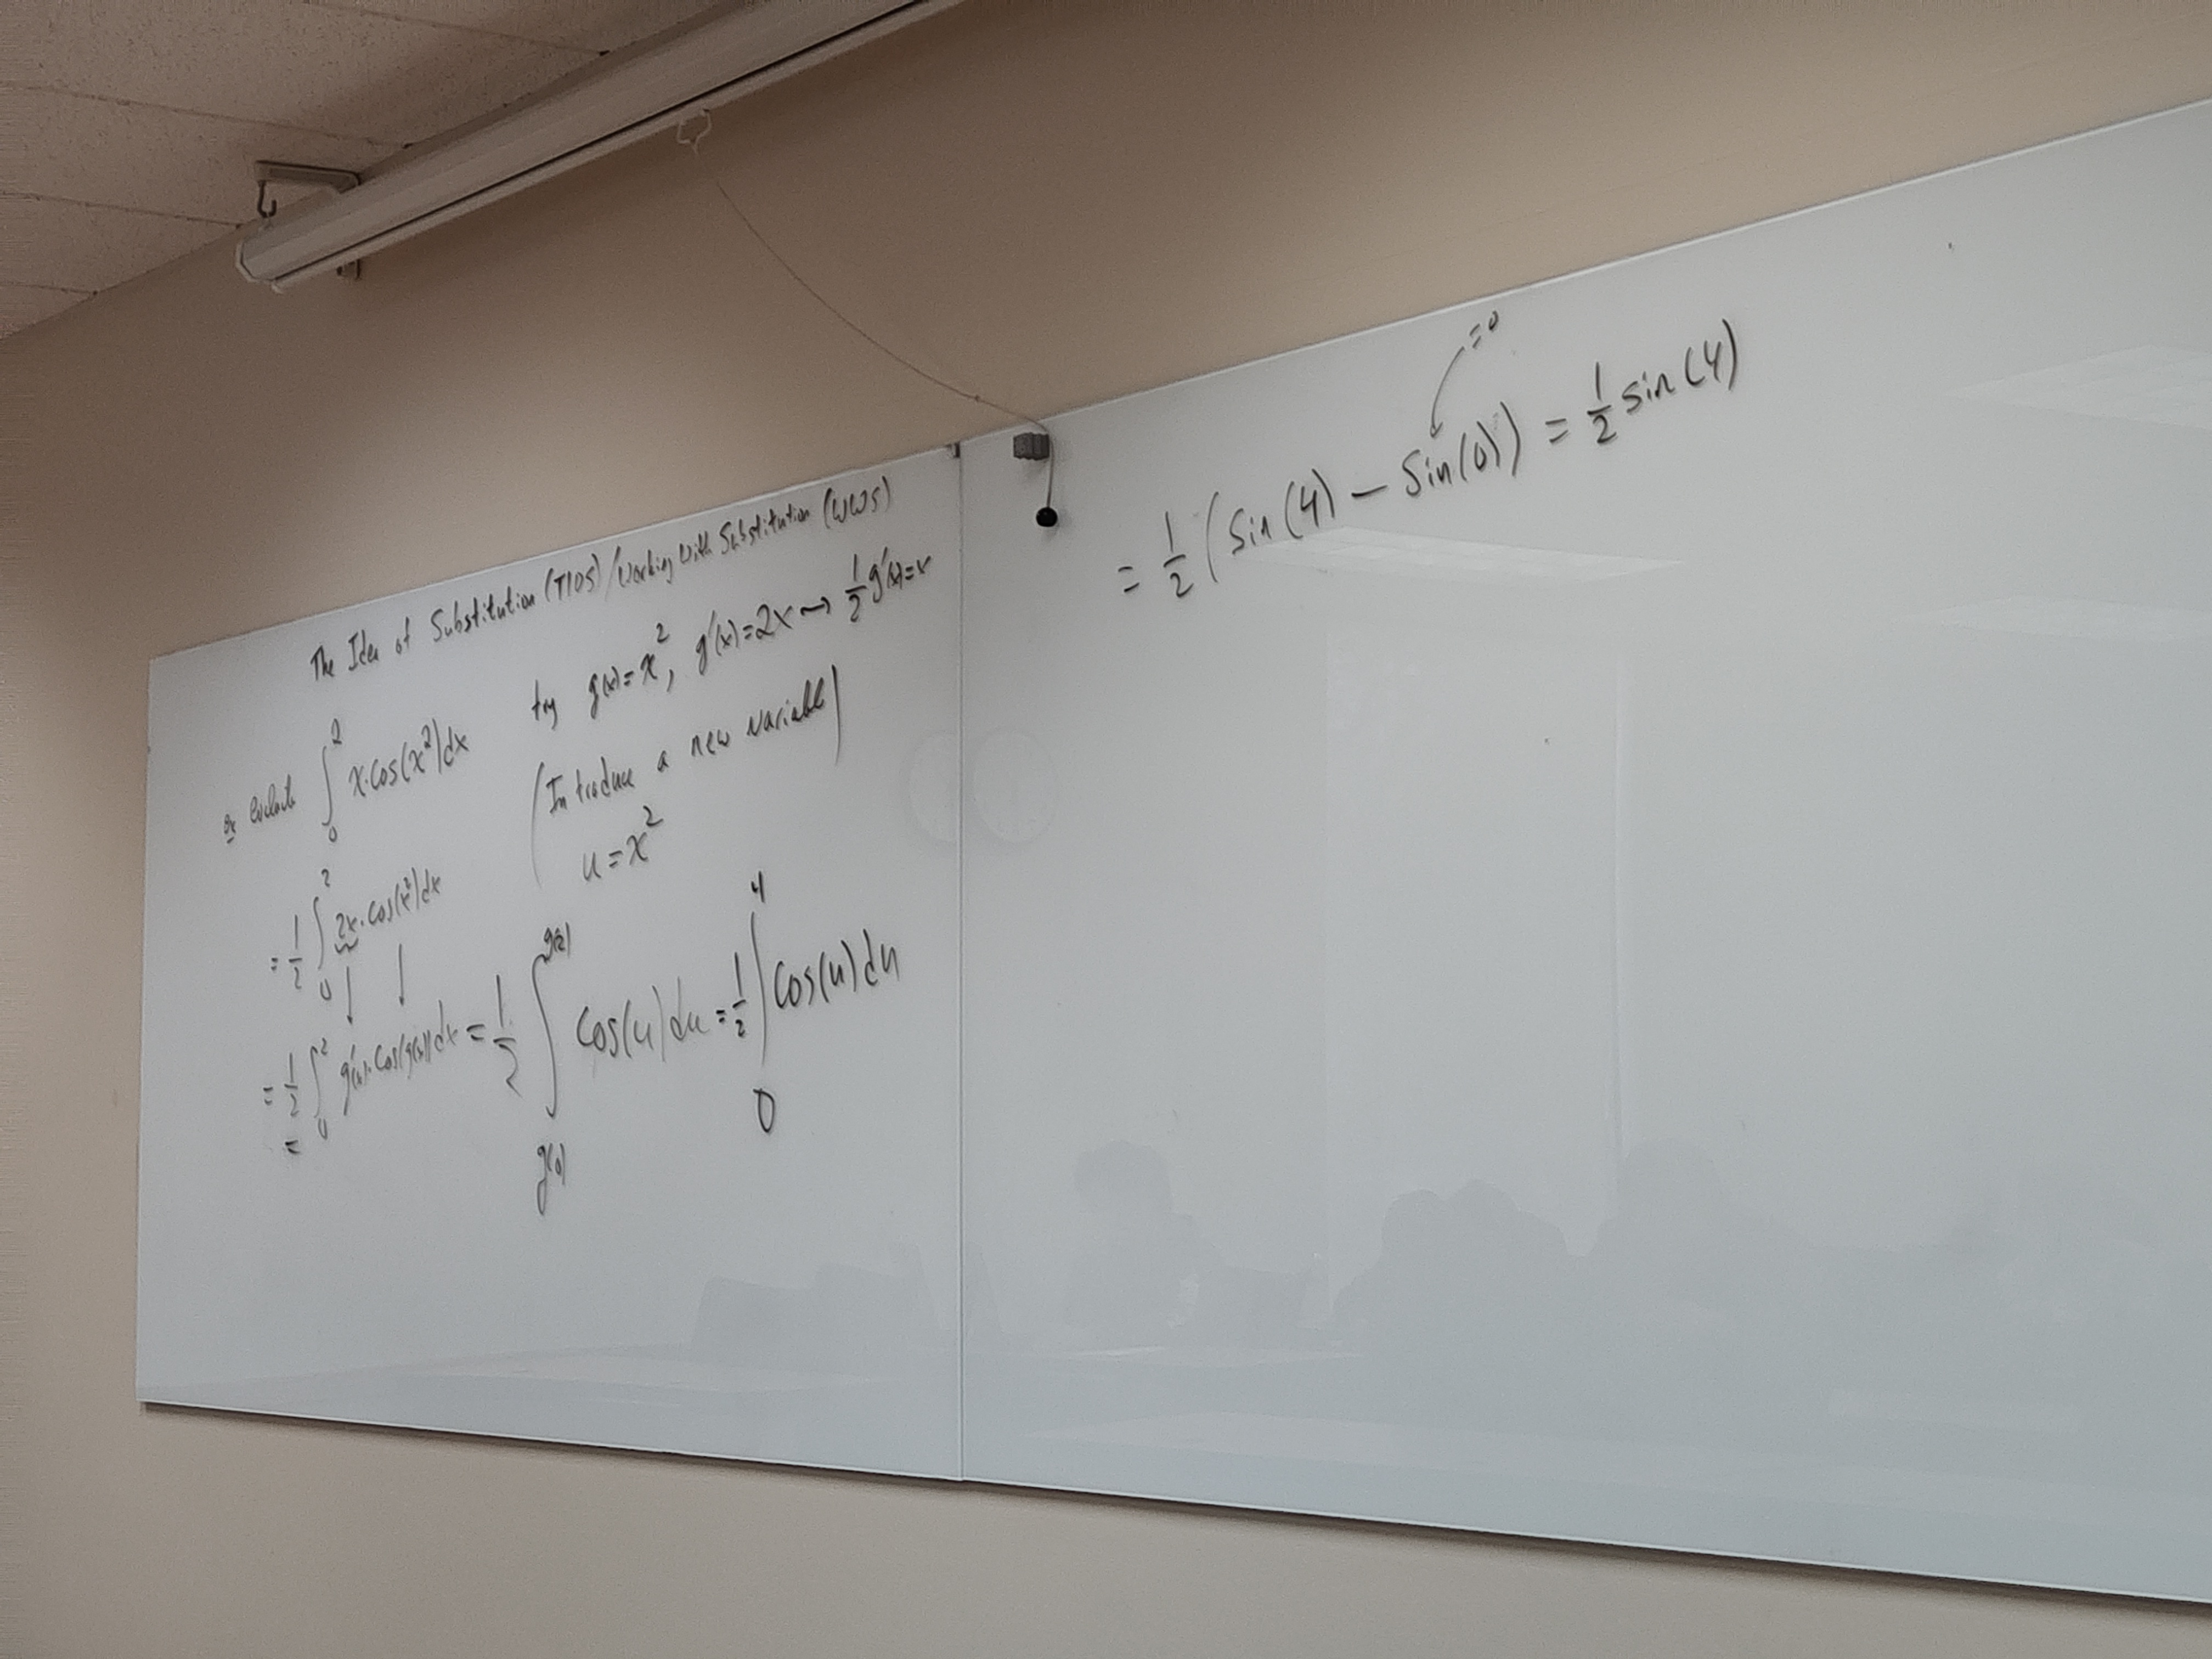 The Idea of Substitution (TIOS)/Working With Substitution (WWS)
Ex Evaluate ∫₀² x·cos(x²)dx try g(x)=x², g'(x)=2x → ½g'(x)=x
(Introduce a new variable)
u=x²
= ½ ∫₀² 2x·cos(x²)dx
= ½ ∫₀² g'(x)·cos(g(x))dx = ½ ∫_{g(0)}^{g(2)} cos(u)du = ½ ∫₀⁴ cos(u)du
=
=0
= ½ (sin(4) − sin(0)) = ½ sin(4)